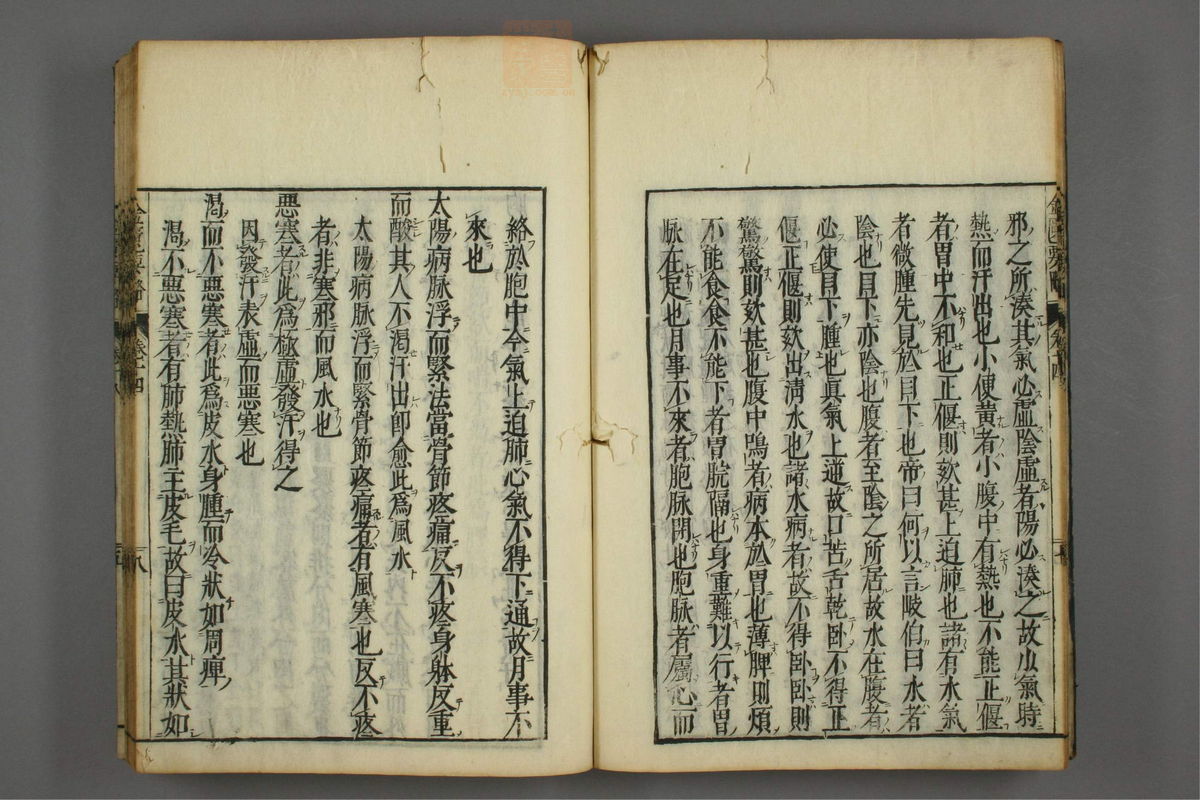 邪之所湊其氣必虛陰虛者陽必湊之故少氣時
熱而汗出也小便黃者小腹中有熱也不能正偃
者胃中不和也正偃則欬甚上迫肺也諸有水氣
者微腫先見於目下也帝曰何以言岐伯曰水者
陰也目下亦陰也腹者至陰之所居故水在腹者
必使目下腫也真氣上逆故口苦舌乾卧不得正
偃正偃則欬出清水也諸水病者故不得卧卧則
驚驚則欬甚也腹中鳴者病本於胃也薄脾則煩
不能食食不能下者胃脘隔也身重難以行者胃
脉在足也月事不來者胞脉閉也胞脉者屬心而
絡於胞中今氣上迫肺心氣不得下通故月事不
來也
太陽病脉浮而緊法當骨節疼痛反不疼身躰反重
而酸其人不渴汗出卽愈此爲風水
太陽病脉浮而緊骨節疼痛者有風寒也反不疼
者非寒邪而風水也
惡寒者此爲極虛發汗得之
因發汗表虛而惡寒也
渴而不惡寒者此爲皮水身腫而冷狀如周痺
渴不惡寒者有肺熱肺主皮毛故曰皮水其狀如